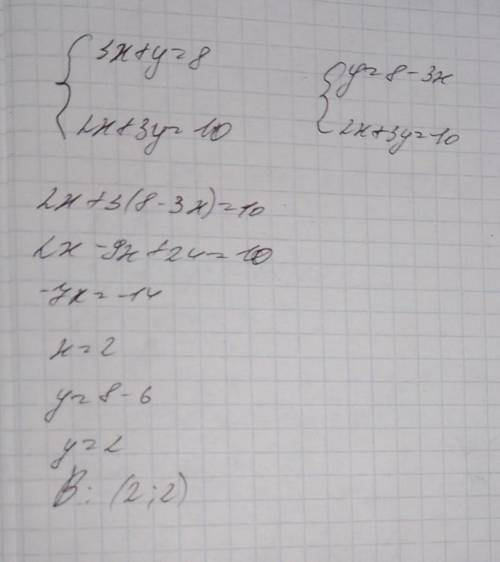 3x+y=8
2x+3y=10
y=8-3x
2x+3y=10
2x+3(8-3x)=10
2x-9x+24=10
-7x=-14
x=2
y=8-6
y=2
В: (2;2)